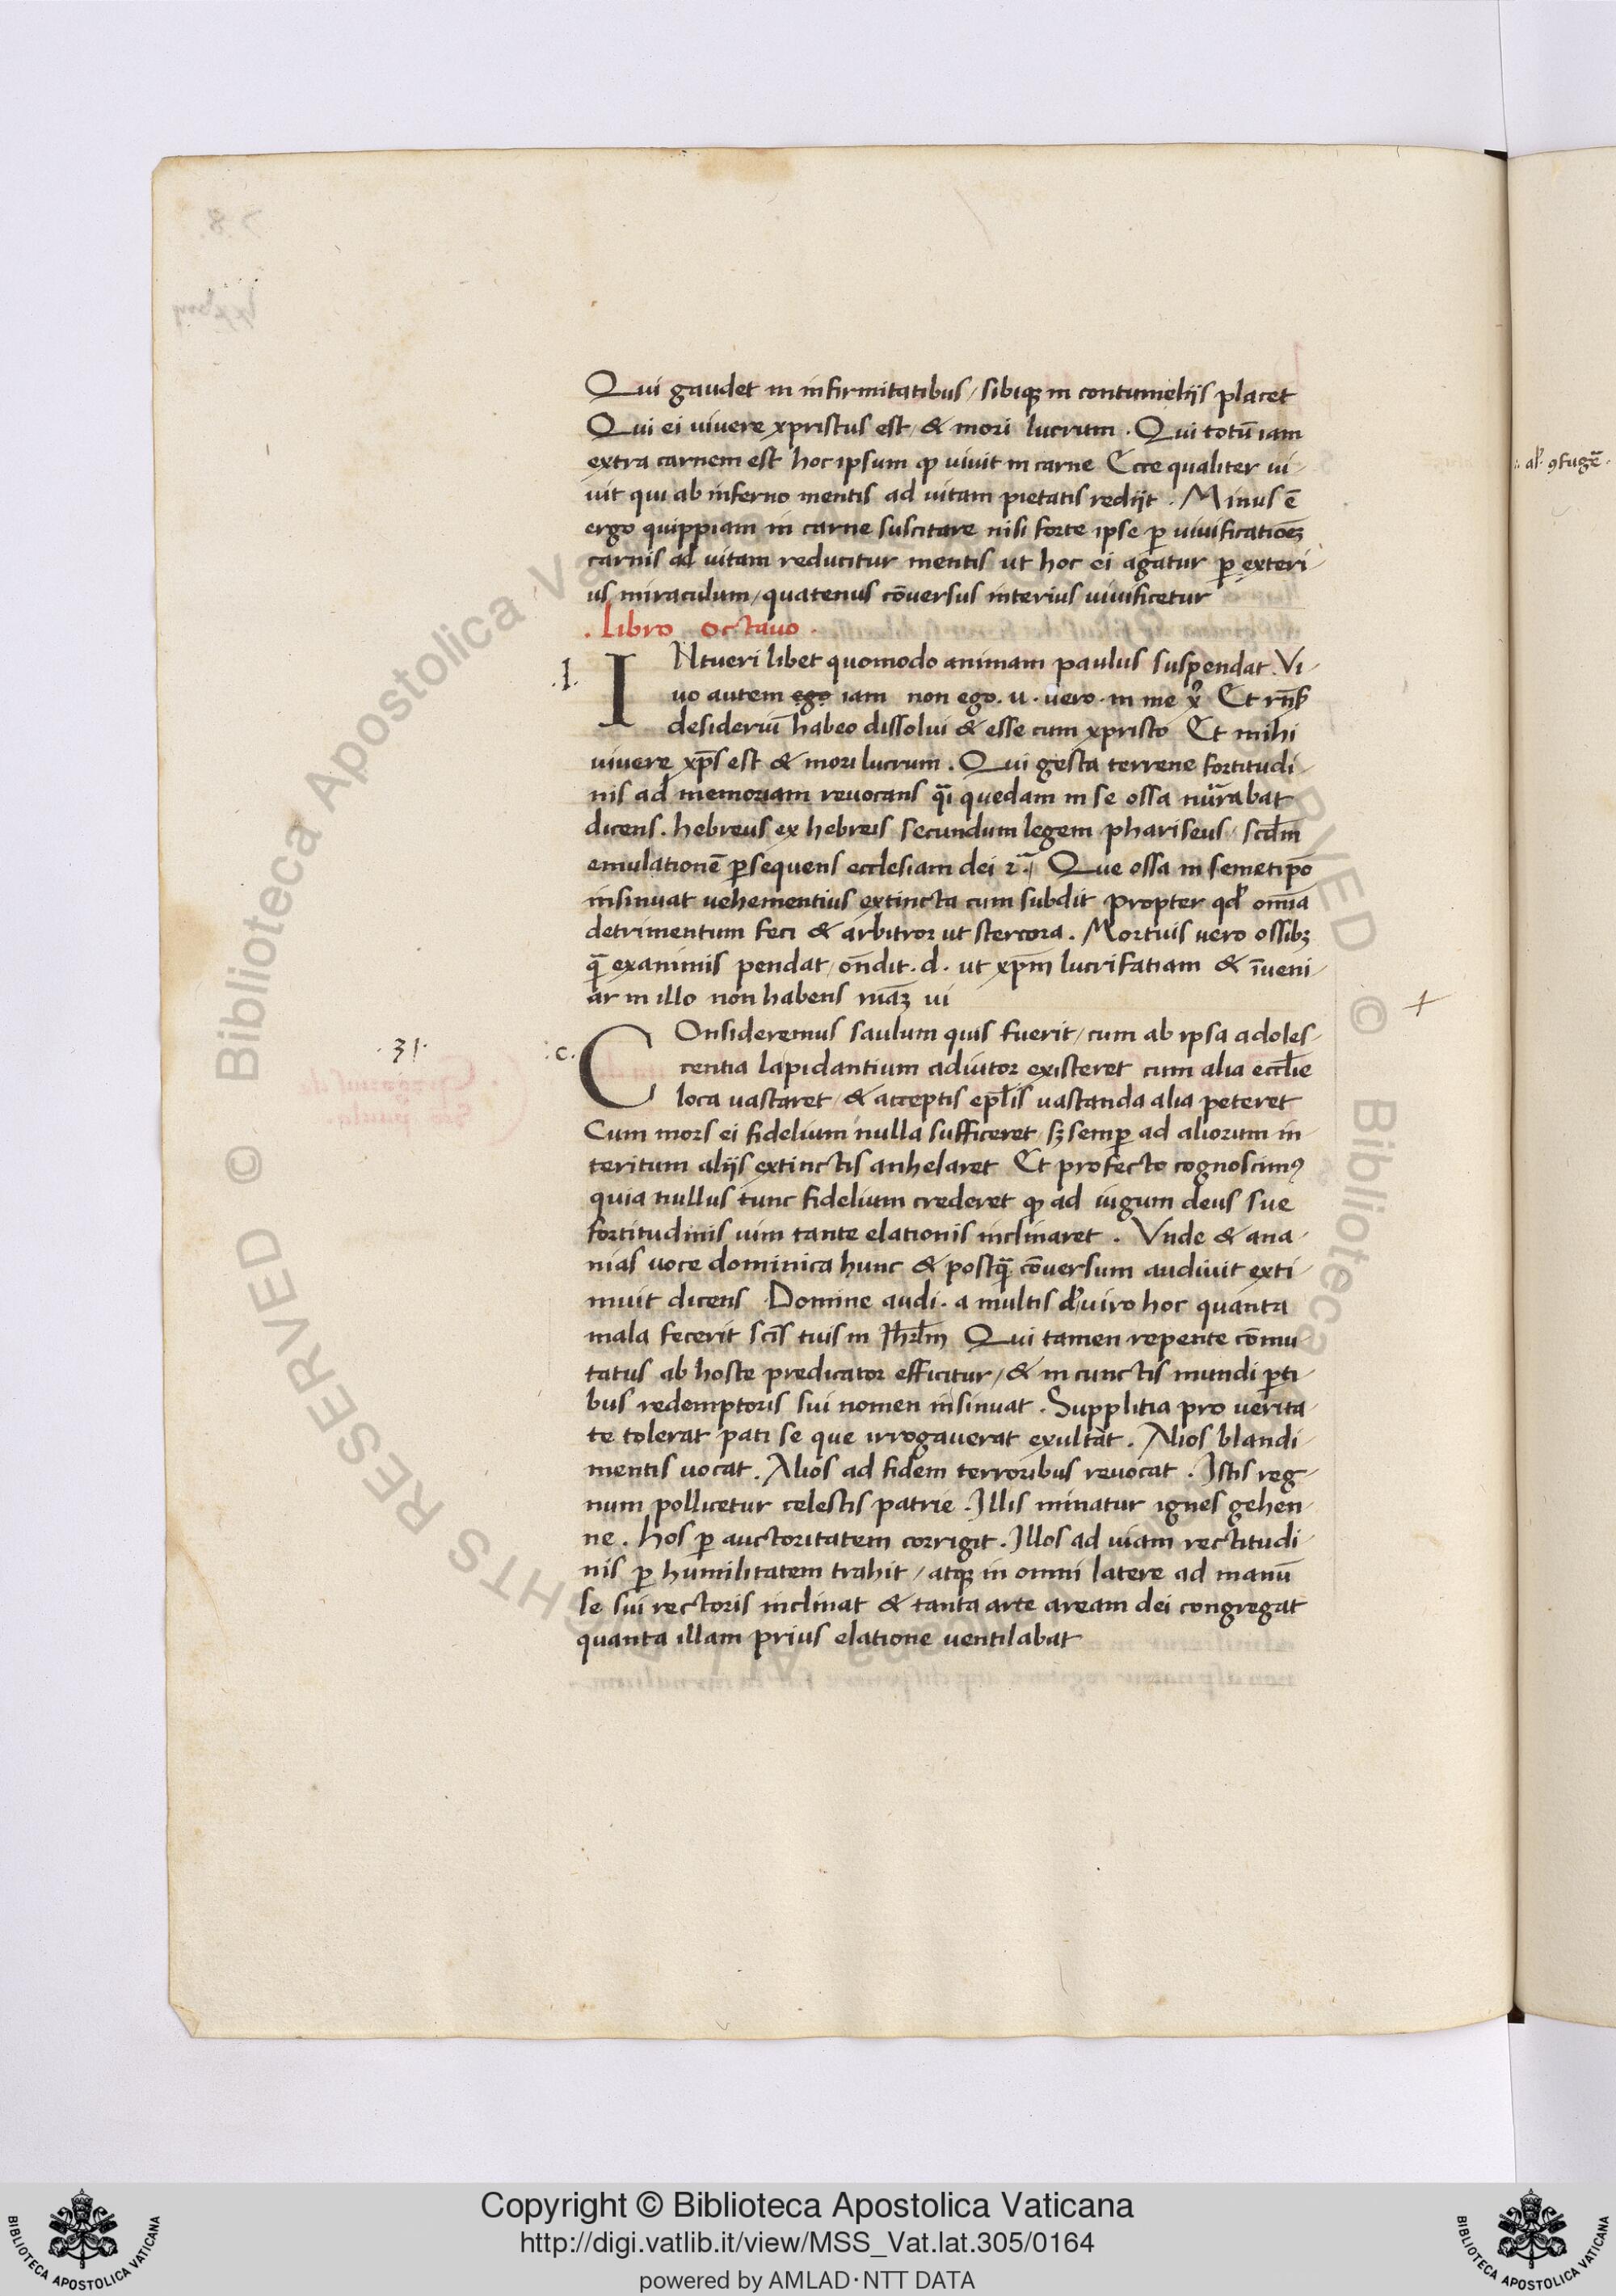 Qui gaudet in infirmitatibus / sibiqꝫ in contumelijs placet
Qui ei vivere xpristus est / & mori lucrum . Qui totū iam
extra carnem est hoc ipsum ꝙ vivit in carne Ecce qualiter vi-
vit qui ab inferno mentis ad vitam pietatis redijt . Minus ē
ergo quippiam in carne suscitare nisi forte ipse ꝑ vivificatiōeꝫ
carnis ad vitam reducitur mentis ut hoc ei agatur ꝑ exteri-
us miraculum / quatenus cōversus interius vivificetur
. Libro octavo .
.I.
INtueri libet quomodo animam paulus suspendat . Vi-
vo autem ego iam non ego . u . vero . in me
desideriū habeo dissolui & esse cum xpristo Et mihi
vivere xp̄s est & mori lucrum . Qui gesta terrene fortitudi-
nis ad memoriam revocans quedam in se ossa
dicens . hebreus ex hebreis secundum legem phariseus / scd̄m
emulationē ꝑsequens ecclesiam dei Que ossa in semetip̄o
insinuat vehementius extincta cum subdit propter qd̓ om̄ia
detrimentum feci & arbitror ut stercora . Mortuis vero ossibꝫ
q̄ exanimis pendat / on̄dit . d . ut xp̄m lucrifatiam & īveni-
ar in illo non habens māꝫ ui
. 31 .
.c.
COnsideremus saulum quis fuerit / cum ab ipsa adoles-
centia lapidantium adiutor existeret cum alia eccl̄ie
loca vastaret / & acceptis ep̄lis vastanda alia peteret
Cum mors ei fidelium nulla sufficeret / sꝫ semꝑ ad aliorum in-
teritum alijs extinctis anhelaret Et profecto cognoscimꝰ
quia nullus tunc fidelium crederet ꝙ ad iugum deus sue
fortitudinis vim tante elationis inclinaret . Vnde & ana-
nias voce dominica hunc & postq̄ cōversum audivit exti-
muit dicens Domine audi . a multis d̓ viro hoc quanta
mala fecerit sc̄is tuis in Jhrl̄m Qui tamen repente cōmu-
tatus ab hoste predicator efficitur / & in cunctis mundi ꝑti-
bus redemptoris sui nomen insinuat . Supplitia pro verita-
te tolerat pati se que irrogaverat exultat . Alios blandi-
mentis vocat . Alios ad fidem terroribus revocat . Istis reg-
num pollicetur celestis patrie . Illis minatur ignes gehen-
ne . hos ꝑ auctoritatem corrigit . Illos ad viam rectitudi-
nis ꝑ humilitatem trahit / atqꝫ in omni latere ad manū
se sui rectoris inclinat & tanta arte aream dei congregat
quanta illam prius elatione ventilabat
: al' ꝯfugē .
Copyright © Biblioteca Apostolica Vaticana
http://digi.vatlib.it/view/MSS_Vat.lat.305/0164
powered by AMLAD·NTT DATA
BIBLIOTECA APOSTOLICA VATICANA
BIBLIOTECA APOSTOLICA VATICANA